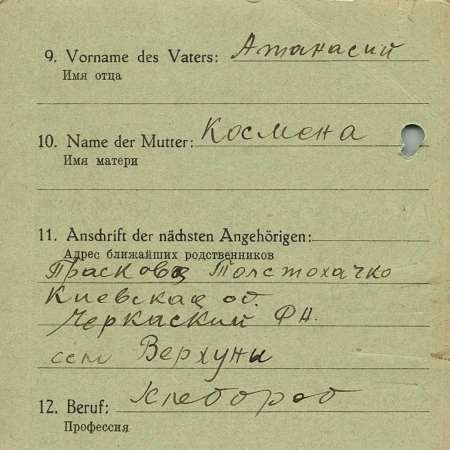 9. Vorname des Vaters: Атанасий
Имя отца
10. Name der Mutter: Космена
Имя матери
11. Anschrift der nächsten Angehörigen:
Адрес ближайших родственников
Прасковя Толстохачко
Киевская об.
Черкаский РН.
село Верхуны
12. Beruf: Хлебороб
Профессия